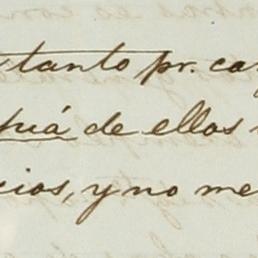 tanto pr. ca
de ellos
cios, y no me